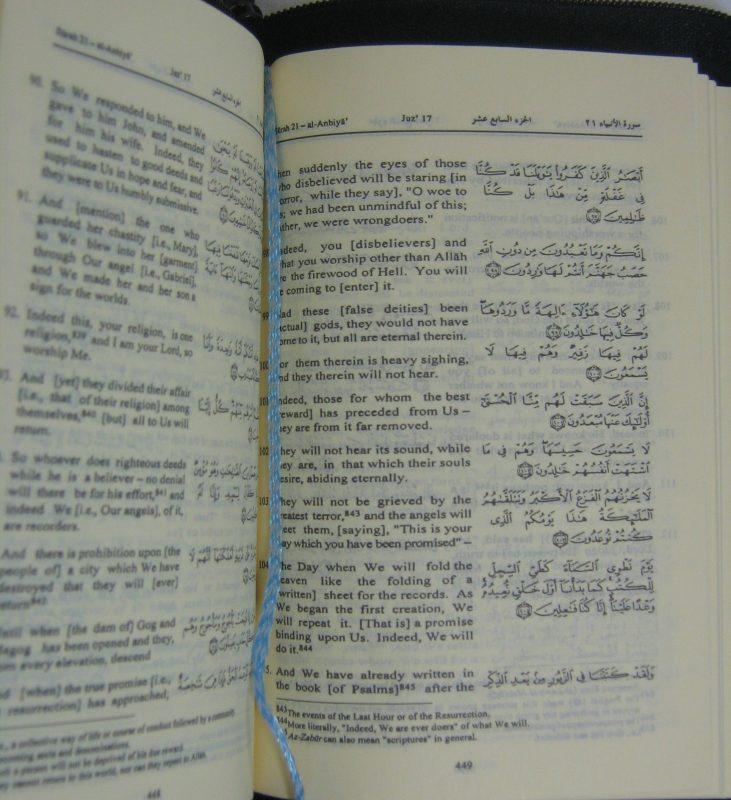 Sūrah 21 – al-Anbiyā' Juz' 17 الجزء السابع عشر
90. So We responded to him, and We
gave to him John, and amended
for him his wife. Indeed, they
used to hasten to good deeds and
supplicate Us in hope and fear, and
they were to Us humbly submissive.
91. And [mention] the one who
guarded her chastity [i.e., Mary],
so We blew into her [garment]
through Our angel [i.e., Gabriel],
and We made her and her son a
sign for the worlds.
92. Indeed this, your religion, is one
religion,839 and I am your Lord, so
worship Me.
93. And [yet] they divided their affair
[i.e., that of their religion] among
themselves,840 [but] all to Us will
return.
So whoever does righteous deeds
while he is a believer – no denial
will there be for his effort,841 and
indeed We [i.e., Our angels], of it,
are recorders.
And there is prohibition upon [the
people of] a city which We have
destroyed that they will [ever]
return842
Until when [the dam of] Gog and
Magog has been opened and they,
from every elevation, descend
And [when] the true promise [i.e.,
resurrection] has approached;
a collective way of life or course of conduct followed by a community
becoming sects and denominations.
a person will not be deprived of his due reward.
they cannot return to this world, nor can they repent to Allāh.
448
Sūrah 21 – al-Anbiyā' Juz' 17 الجزء السابع عشر سورة الأنبياء ٢١
then suddenly the eyes of those
who disbelieved will be staring [in
horror, while they say], "O woe to
us; we had been unmindful of this;
rather, we were wrongdoers."
أَبْصَٰرُ ٱلَّذِينَ كَفَرُوا۟ يَٰوَيْلَنَا قَدْ كُنَّا
فِى غَفْلَةٍ مِّنْ هَٰذَا بَلْ كُنَّا
ظَٰلِمِينَ ۝٩٧
98 Indeed, you [disbelievers] and
what you worship other than Allāh
are the firewood of Hell. You will
be coming to [enter] it.
إِنَّكُمْ وَمَا تَعْبُدُونَ مِن دُونِ ٱللَّهِ
حَصَبُ جَهَنَّمَ أَنتُمْ لَهَا وَٰرِدُونَ ۝٩٨
99 Had these [false deities] been
[actual] gods, they would not have
come to it, but all are eternal therein.
لَوْ كَانَ هَٰٓؤُلَآءِ ءَالِهَةً مَّا وَرَدُوهَا
وَكُلٌّ فِيهَا خَٰلِدُونَ ۝٩٩
100 For them therein is heavy sighing,
and they therein will not hear.
لَهُمْ فِيهَا زَفِيرٌ وَهُمْ فِيهَا لَا
يَسْمَعُونَ ۝١٠٠
Indeed, those for whom the best
[reward] has preceded from Us –
they are from it far removed.
إِنَّ ٱلَّذِينَ سَبَقَتْ لَهُم مِّنَّا ٱلْحُسْنَىٰٓ
أُو۟لَٰٓئِكَ عَنْهَا مُبْعَدُونَ ۝١٠١
102 They will not hear its sound, while
they are, in that which their souls
desire, abiding eternally.
لَا يَسْمَعُونَ حَسِيسَهَا وَهُمْ فِى مَا
ٱشْتَهَتْ أَنفُسُهُمْ خَٰلِدُونَ ۝١٠٢
103 They will not be grieved by the
greatest terror,843 and the angels will
meet them, [saying], "This is your
Day which you have been promised" –
لَا يَحْزُنُهُمُ ٱلْفَزَعُ ٱلْأَكْبَرُ وَتَتَلَقَّىٰهُمُ
ٱلْمَلَٰٓئِكَةُ هَٰذَا يَوْمُكُمُ ٱلَّذِى
كُنتُمْ تُوعَدُونَ ۝١٠٣
104 The Day when We will fold the
heaven like the folding of a
[written] sheet for the records. As
We began the first creation, We
will repeat it. [That is] a promise
binding upon Us. Indeed, We will
do it.844
يَوْمَ نَطْوِى ٱلسَّمَآءَ كَطَىِّ ٱلسِّجِلِّ
لِلْكُتُبِ كَمَا بَدَأْنَآ أَوَّلَ خَلْقٍ نُّعِيدُهُۥ
وَعْدًا عَلَيْنَآ إِنَّا كُنَّا فَٰعِلِينَ ۝١٠٤
5. And We have already written in
the book [of Psalms]845 after the
وَلَقَدْ كَتَبْنَا فِى ٱلزَّبُورِ مِنۢ بَعْدِ ٱلذِّكْرِ
843The events of the Last Hour or of the Resurrection.
844More literally, "Indeed, We are ever doers" of what We will.
Az-Zabūr can also mean "scriptures" in general.
449